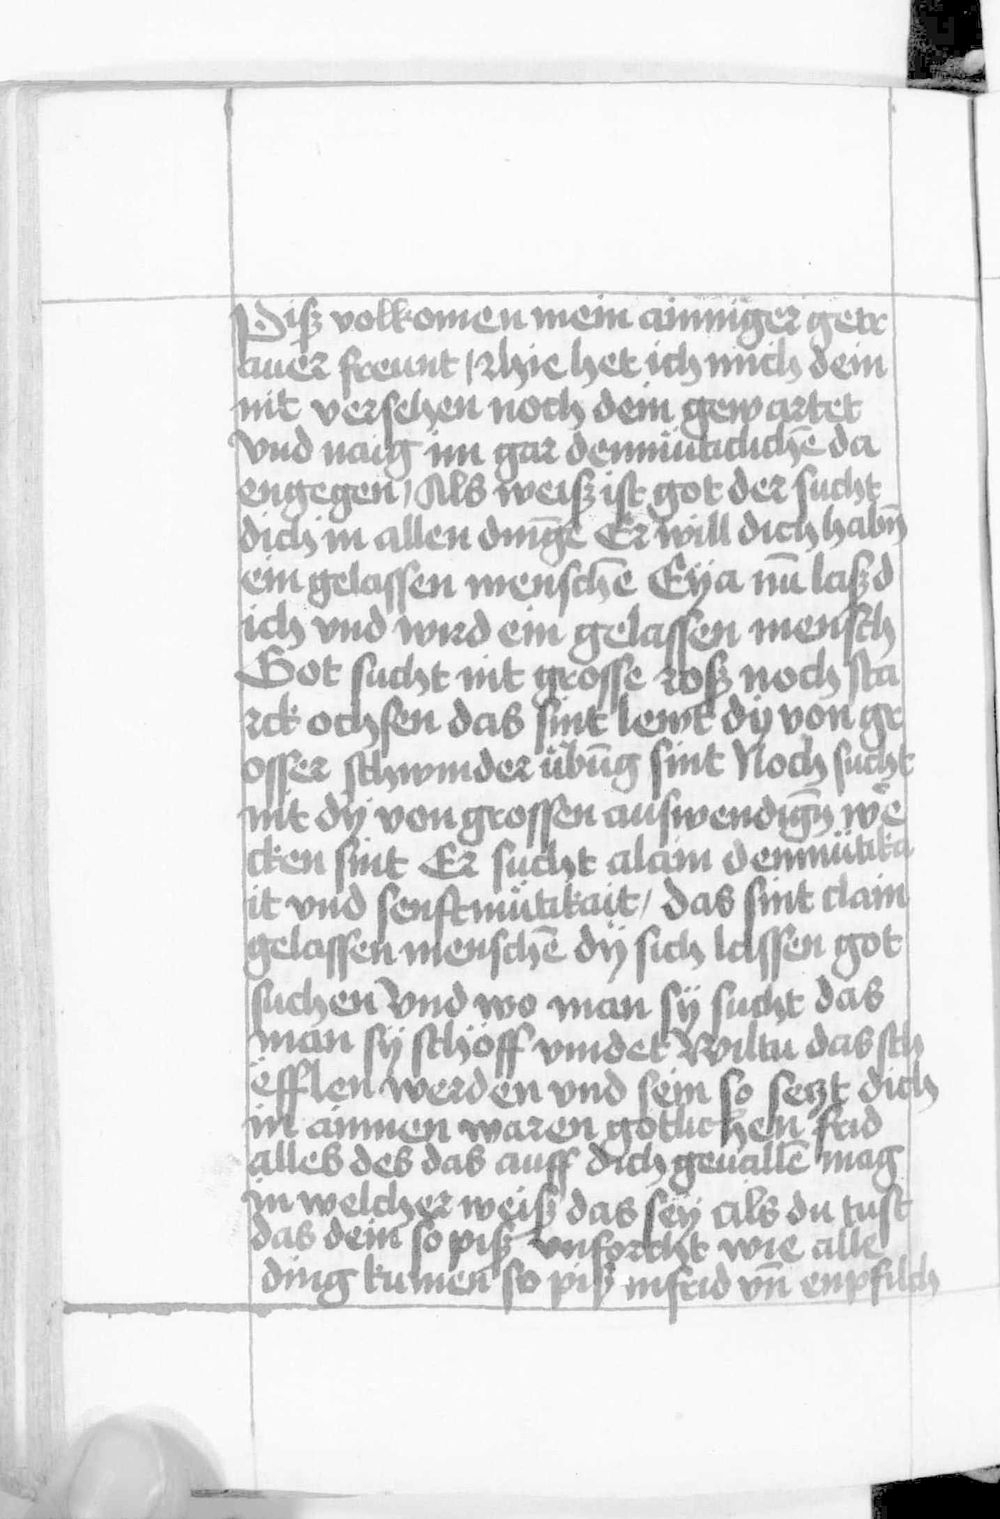 Piß volkomen mein ainniger getr
auer freunt / rhie het ich mich dein
nit versehen noch dein gewartet
Vnd naig im gar demmüticlichē da
engegen / Als weiß ist got der sucht
dich in allen dingē Er will dich habn̄
ein gelassen menschē Eÿa nū laß d
ich vnd wird ein gelassen mensch
Got sucht nit grosse roß noch sta
rck ochsen das sint lewt dÿ von gr
osser schwinder übūg sint Noch sucht
nit dÿ von grossen auswendign̄ we
cken sint Er sucht alain demmütika
it vnd senftmütikait / das sint clain
gelassen menschē dÿ sich lassen got
suchen Vnd wo man sÿ sucht das
man sÿ schöff vindet Wiltu das sch
efflen werden vnd sein so setzt dich
in ainnen waren gotlichen frid
alles des das auff dich geuallē mag
in welcher weiß das seÿ als du tust
das dein so piß vnforcht wie alle
ding kumen so piß in frid vn̄ enpfilch